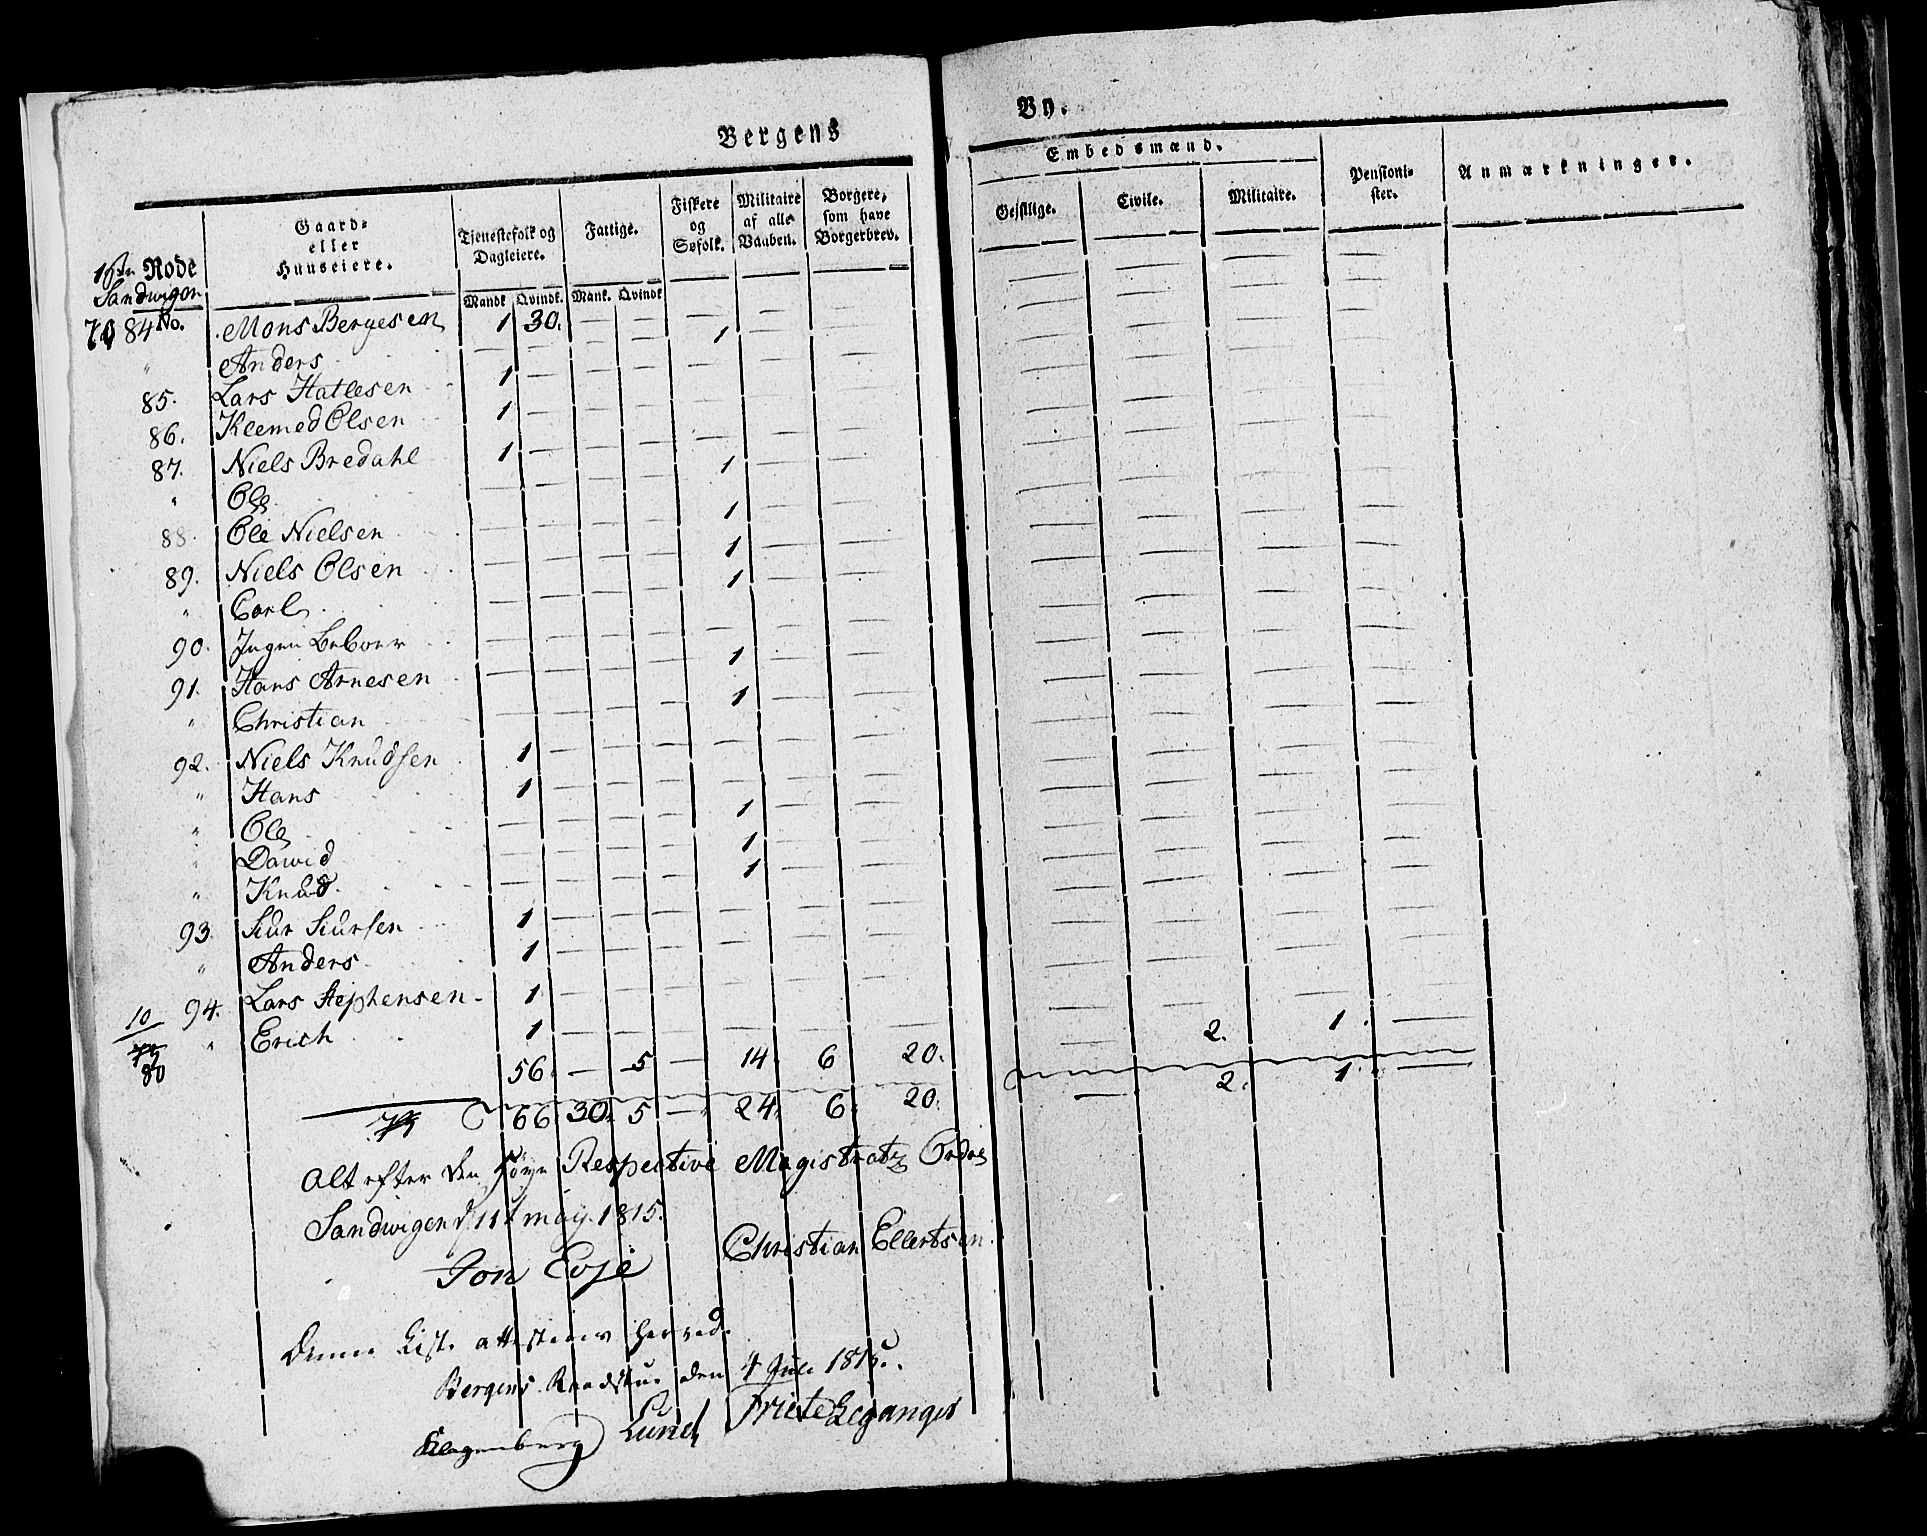 Bergens
By.
16de Rode
Sandwigen
Gaard-
eller
Huuseiere.
Tjenestefolk og
Dagleiere.
Mandk. Qvindk.
Fattige.
Mank. Qvindk
Fiskere
og
Søfolk.
Militaire
af alle
Vaaben.
Borgere,
som have
Borgerbrev.
Embedsmænd.
Gejstlige. Civile. Militaire.
Pensioni-
ster.
Anmærkninger.
70 84 No. Mons Bergesen 1 30. — — — — —
" Anders — — — — 1 — —
85. Lars Hatlesen 1 — — — — — —
86. Kleemed Olsen 1 — — — — — —
87. Niels Bredahl 1 — — — — — —
" Ole — — — — 1 — —
88. Ole Nielsen — — — — 1 — —
89. Niels Olsen — — — — 1 — —
" Carl — — — — 1 — —
90. Ingen Beboer — — — — — — —
91. Hans Arnesen — — — — 1 — —
" Christian — — — — 1 — —
92. Niels Knudsen 1 — — — — — —
" Hans 1 — — — — — —
" Ole — — — — 1 — —
" Dawid — — — — 1 — —
" Knud — — — — 1 — —
93. Siur Siursen 1 — — — — — —
" Anders 1 — — — — — —
94. Lars Stephensen 1 — — — — — —
" Erich 1 — — — — — —
10
80
56 — 5 — 14 6 20. — 2. 1. —
66 30. 5 — 24. 6. 20. — 2. 1. —
Alt efter den Høye Respective Magistratz Ordre
Sandwigen d 11t may 1815.
Jon Evje Christian Ellertsen.
Denne Liste attesteres herved.
Bergens Raadstue den 4 Juli 1815.
Klagenberg Lund